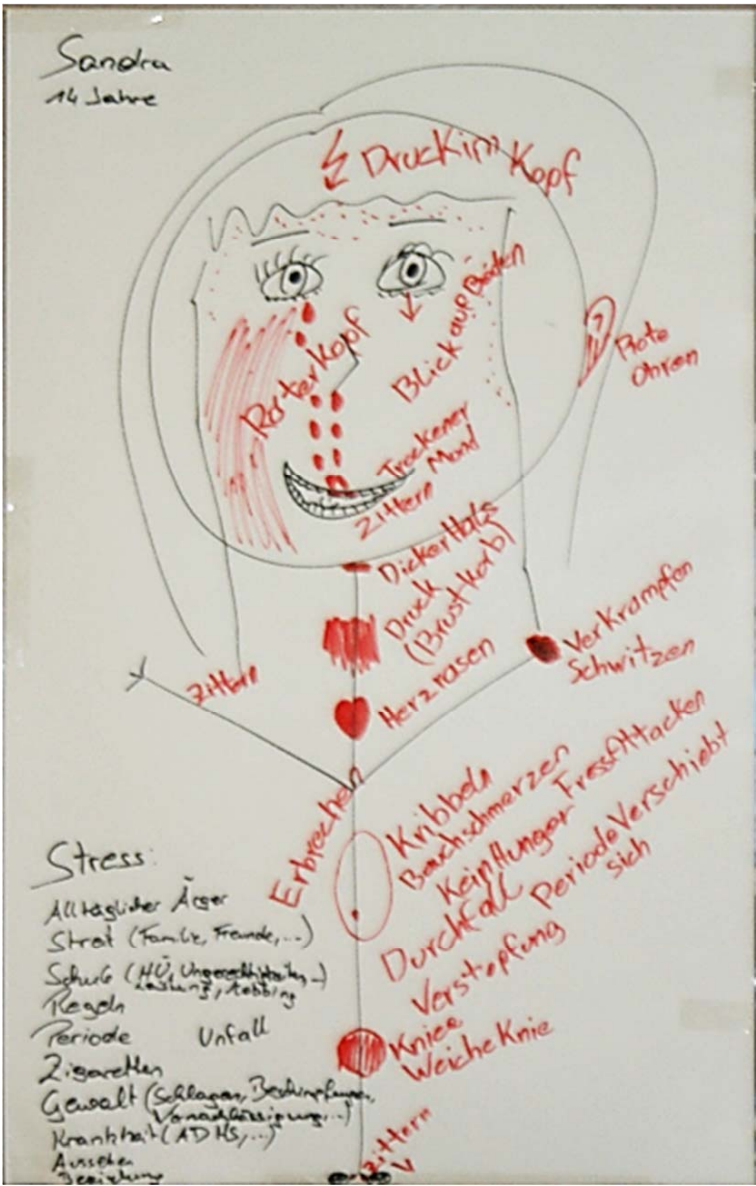 Sandra
14 Jahre
Druck im Kopf
Roter Kopf
Blick auf Boden
Rote
Ohren
Trockener
Mond
Zittern
Dicker Hals
Druck
(Brustkorb)
Herzrasen
Verkrampfen
Schwitzen
Zittern
Erbrechen
Kribbeln
Bauchschmerzen
Kein Hunger FressAttacken
Durchfall
Periode Verschiebt
sich
Verstopfung
Kniee
Weiche Knie
Zittern
Stress:
Alltäglicher Ärger
Streit (Familie, Freunde, ...)
Schule (HÜ, Ungerechtigkeiten, ...)
Leistung, Mobbing
Regeln
Periode Unfall
Zigaretten
Gewalt (Schlagen, Beschimpfungen,
Vernachlässigung, ...)
Krankheit (ADHS, ...)
Aussehen
Beziehung